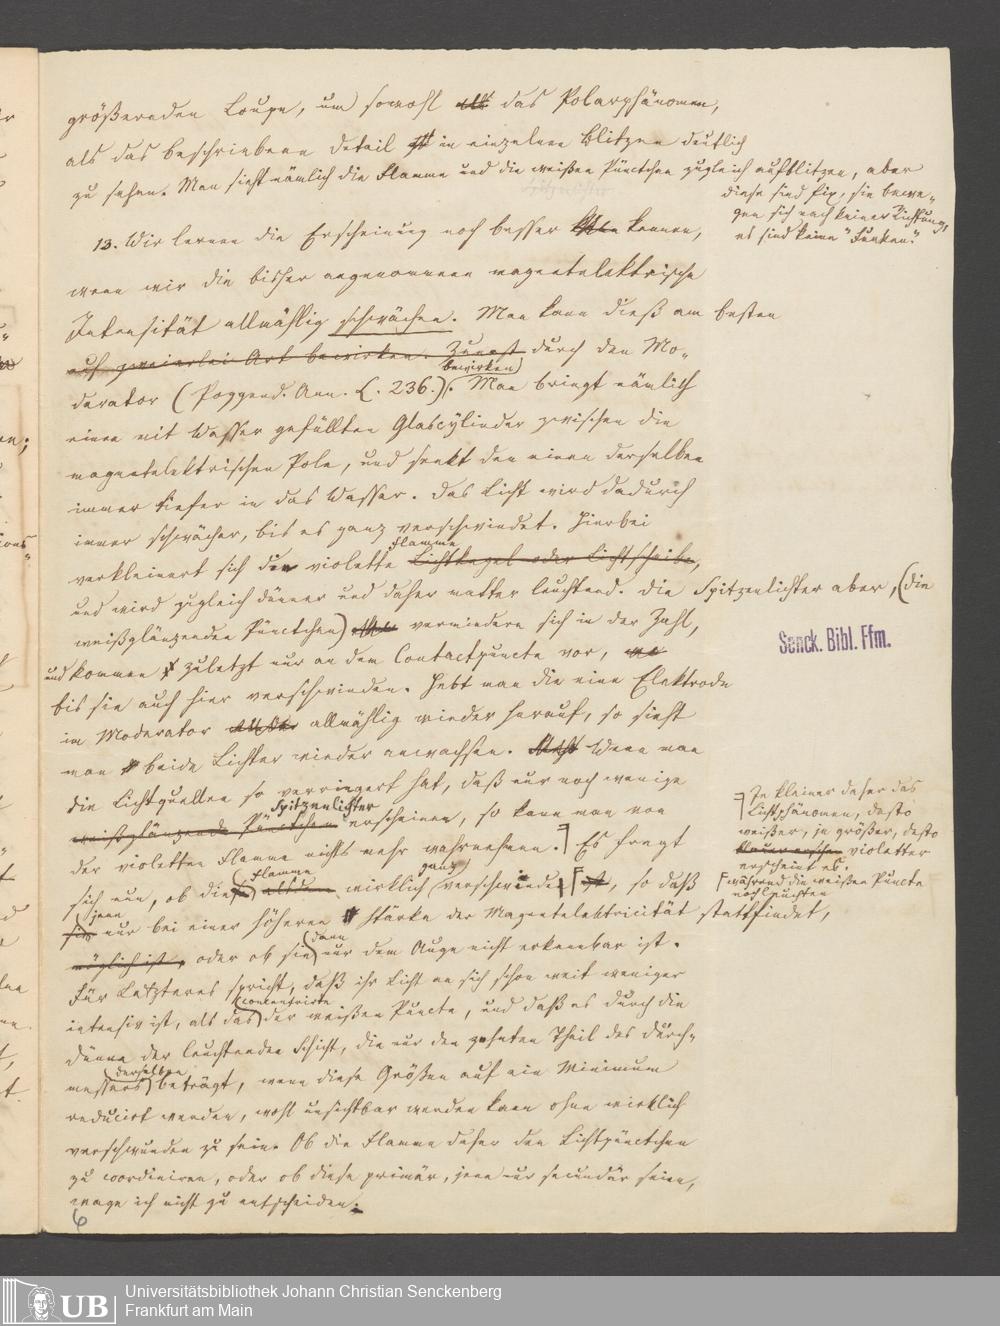 größernden Loupe, um sowohl das Polarphänomen,
als das beschriebene Detail in einzelnen Blitzen deutlich
zu sehen. Man sieht nämlich die Flamme und die weißen Pünctchen zugleich aufblitzen, aber
diese sind fix, sie bewe-
gen sich nach keiner Richtung,
es sind keine "Funken."
13. Wir lernen die Erscheinung noch besser kennen,
wenn wir die bisher angenommene magnetelektrische
Intensität allmählig schwächen. Man kann dieß am besten
auf zweierlei Art bewirken. Zunächst durch den Mo-
derator (Poggend. Ann. L. 236.) bewirken. Man bringt nämlich
einen mit Wasser gefüllten Glascylinder zwischen die
magnetelektrischen Pole, und senkt den einen derselben
immer tiefer in das Wasser. Das Licht wird dadurch
immer schwächer, bis es ganz verschwindet. Hierbei
verkleinert sich die violette Flamme Lichtkegel oder Lichtscheibe,
und wird zugleich dünner und daher matter leuchtend. Die Spitzenlichter aber, (die
weißglänzenden Pünctchen) vermindern sich in der Zahl,
und kommen zuletzt nur an dem Contactpuncte vor,
bis sie auch hier verschwinden. Hebt man die eine Elektrode
im Moderator allmählig wieder herauf, so sieht
man beide Lichter wieder anwachsen. Wenn man
die Lichtquellen so verringert hat, daß nur noch wenige
Spitzenlichter
weißglänzende Pünctchen erscheinen, so kann man von
der violetten Flamme nichts mehr wahrnehmen. Es fragt
Je kleiner daher das
Lichtphänomen, desto
weißer, je größer, desto
violetter
erscheint es.
während die weißen Puncte
noch leuchten
sich nun, ob die Flamme wirklich ganz verschwindet, so daß
jene nur bei einer höheren Stärke der Magnetelektricität stattfindet,
möglich ist, oder ob sie dann nur dem Auge nicht erkennbar ist.
Für Letzteres spricht, daß ihr Licht an sich schon weit weniger
intensiv ist, als das concentrirte der weißen Puncte, und daß es durch die
Dünne der leuchtenden Schicht, die nur den zehnten Theil des Durch-
messers derselben beträgt, wenn diese Größen auf ein Minimum
reducirt werden, wohl unsichtbar werden kann ohne wirklich
verschwunden zu sein. Ob die Flamme daher den Lichtpünctchen
zu coordiniren, oder ob diese primär, jene nur secundär seien,
wage ich nicht zu entscheiden.
6
Senck. Bibl. Ffm.
UB
Universitätsbibliothek Johann Christian Senckenberg
Frankfurt am Main